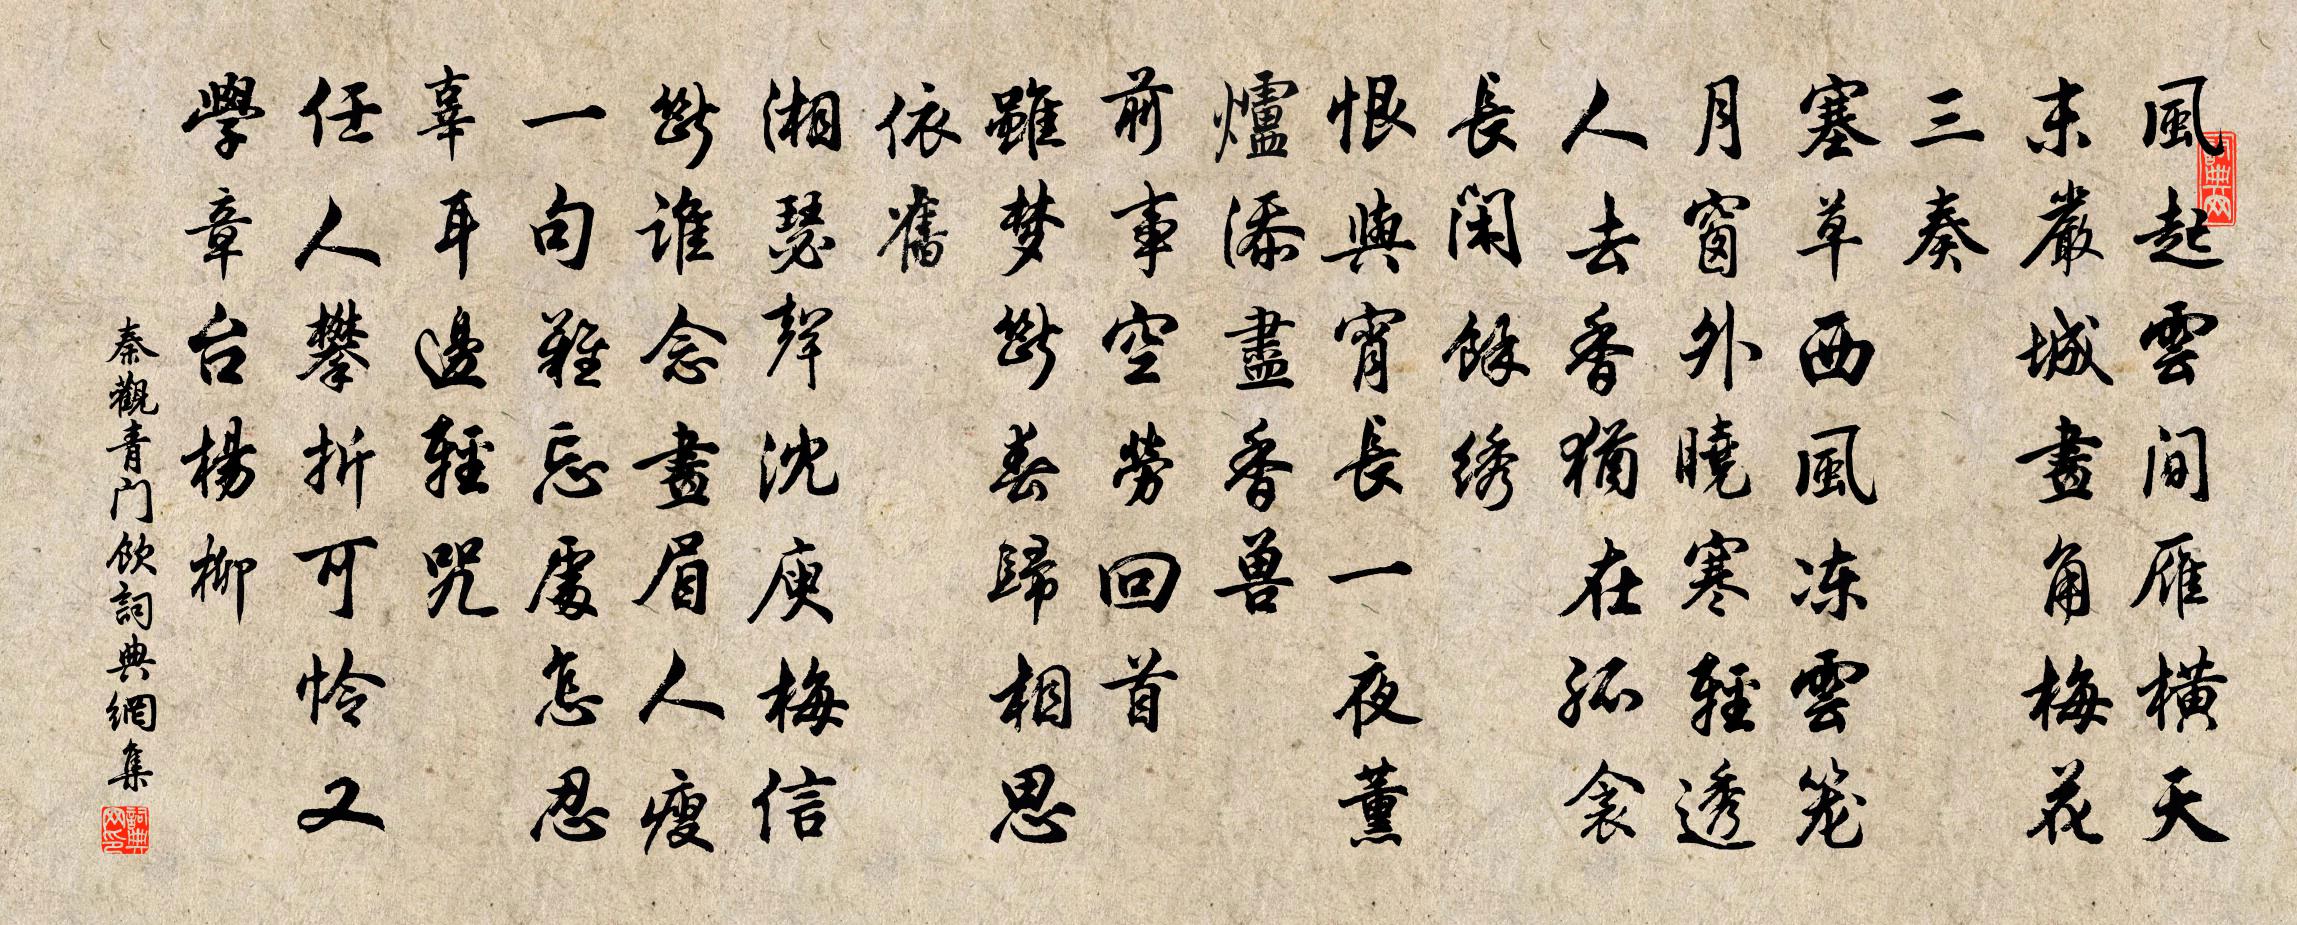 風起雲间雁横天
末嚴城畫角梅花
三奏
塞草西風冻雲笼
月窗外曉寒輕透
人去香猶在孤衾
長闲餘绣
恨與宵長一夜薰
爐添盡香兽
前事空勞回首
雖梦斷春歸相思
依舊
湘瑟聲沈庾梅信
斷谁念畫眉人瘦
一句難忘處怎忍
辜耳邊輕咒
任人攀折可怜又
學章台楊柳
秦觀青门饮詞典網集
詞典网
詞典网印